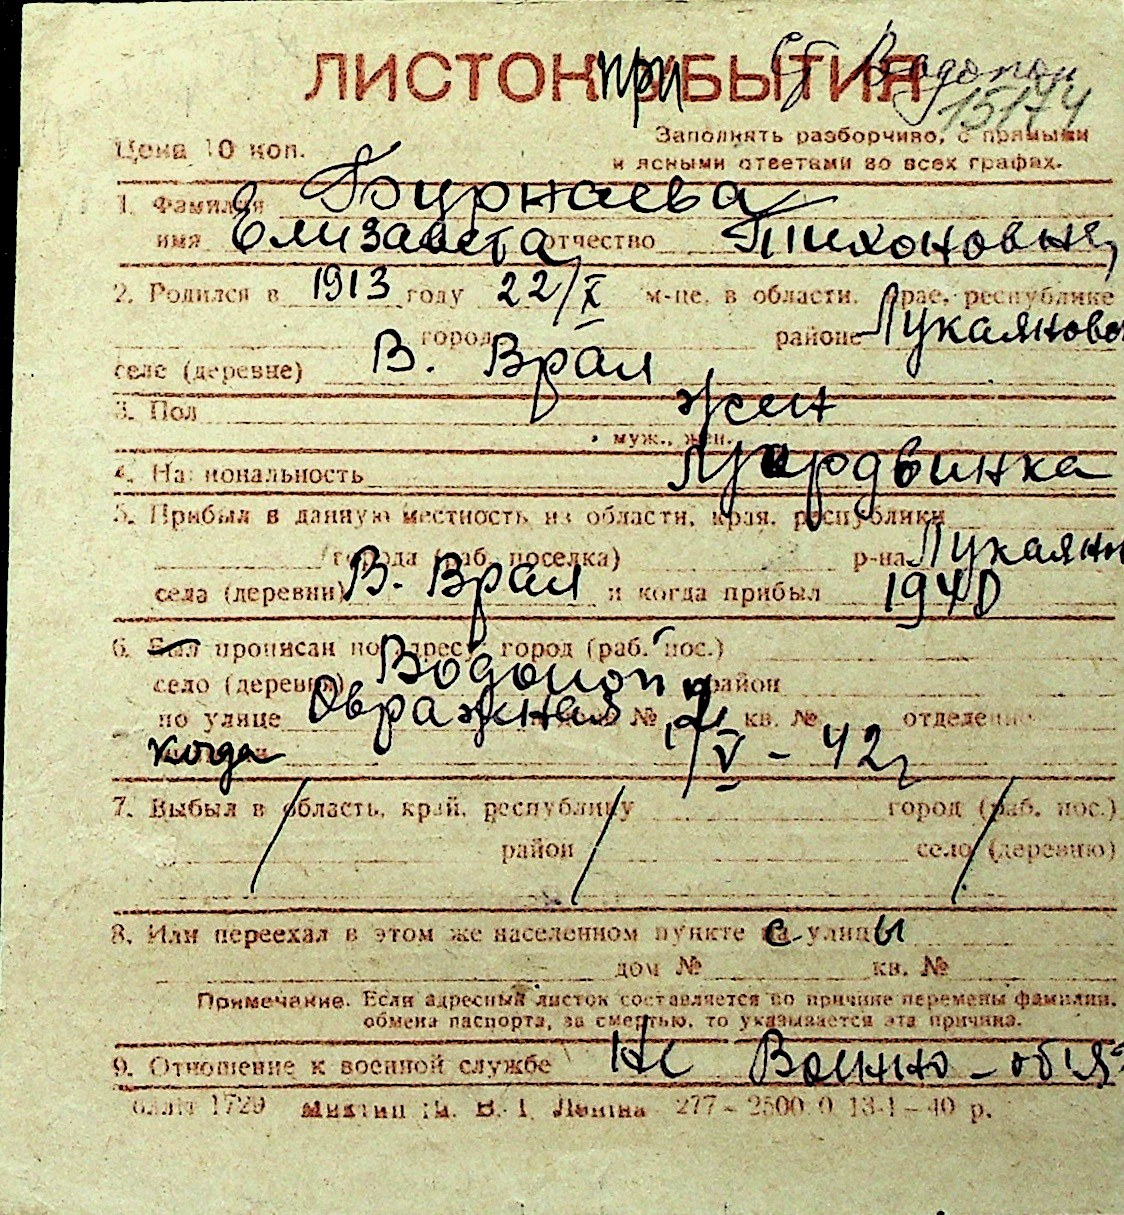 ст Водопой
ЛИСТОК при БЫТИЯ
15174
Цена 10 коп.
Заполнять разборчиво, с прямыми
и ясными ответами во всех графах.
1. Фамилия Бурнаева
имя Елизавета отчество Тихоновна
2. Родился в 1913 году 22/X м-це, в области, крае, республике
город районе Лукаяново
селе (деревне) В. Врал
3. Пол жен
муж., жен.
4. Национальность Мордвинка
5. Прибыл в данную местность из области, края, республики
города (раб. поселка) р-на Лукаян
села (деревни) В. Врал и когда прибыл 1940
6. Был прописан по адресу: город (раб. пос.)
село (деревня) Водопой район
по улице Овражная № кв. № отделение
когда 1/V - 42 г
7. Выбыл в область, край, республику город (раб. пос.)
район село (деревню)
8. Или переехал в этом же населенном пункте с улицы
дом № кв. №
Примечание. Если адресный листок составляется по причине перемены фамилии,
обмена паспорта, за смертью, то указывается эта причина.
9. Отношение к военной службе Не Военно-обяз
1729 им. В. I. Леніна 277 - 2500.0 13-I - 40 р.